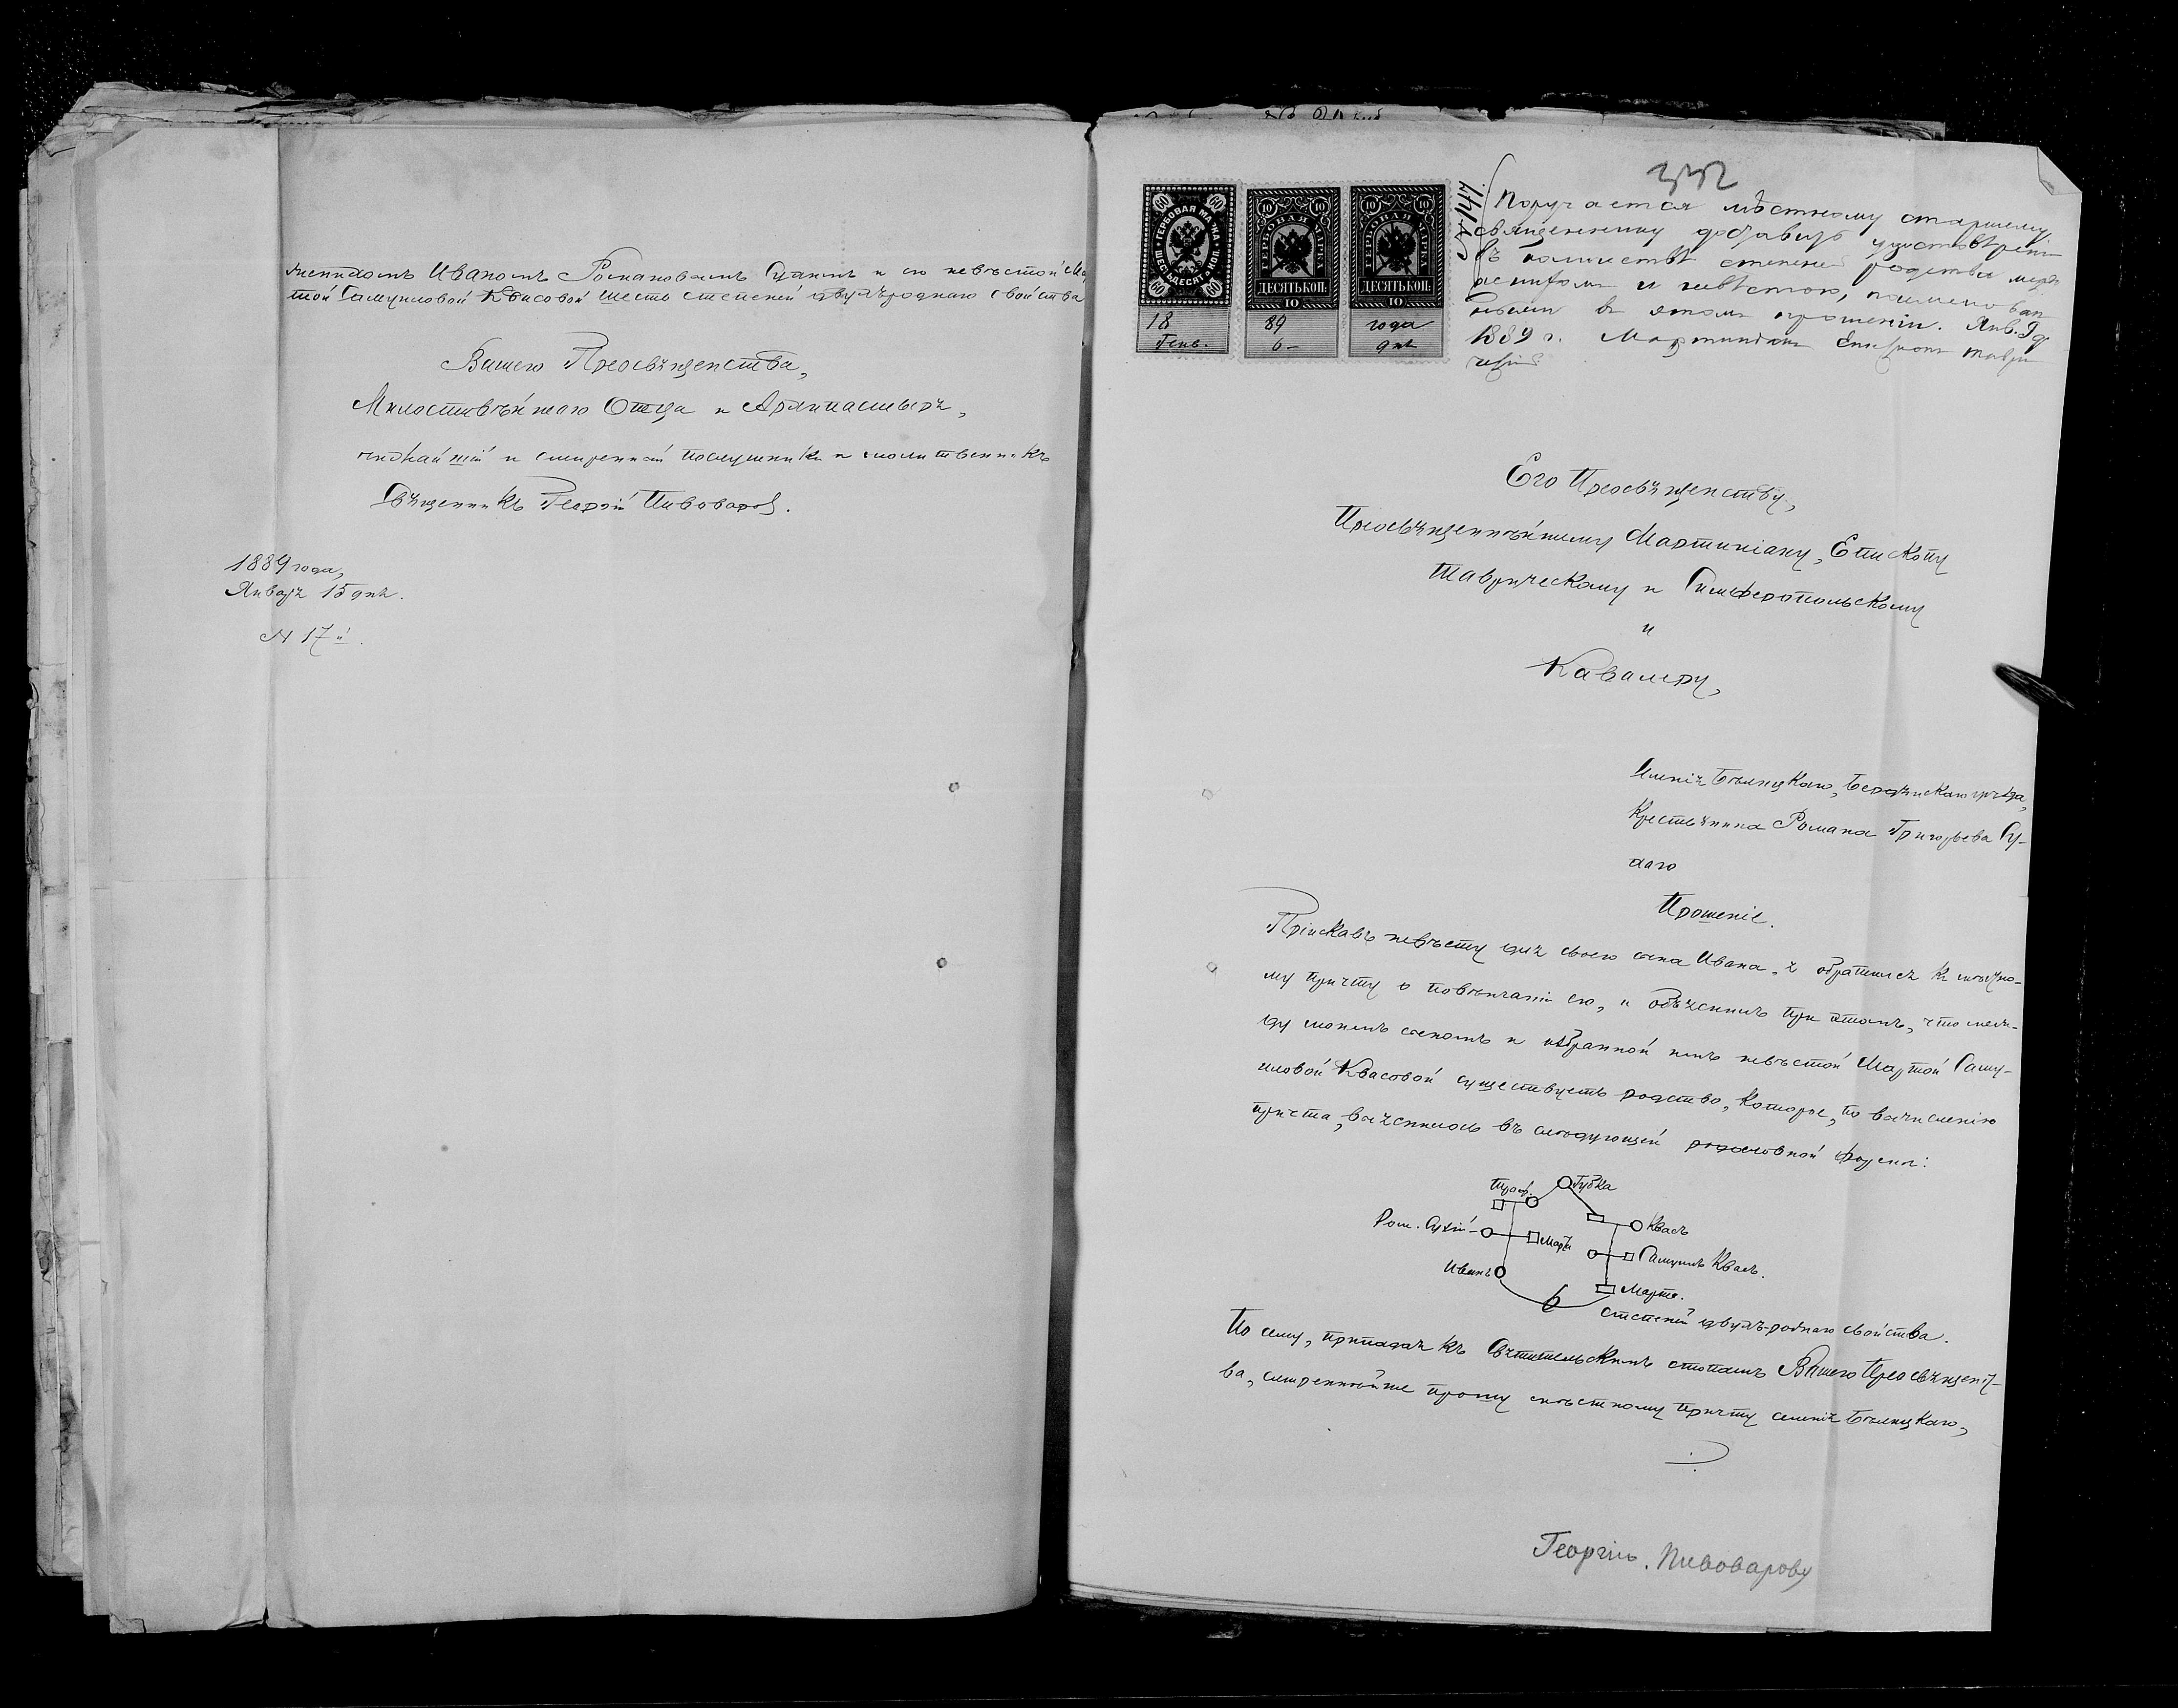 женихомъ Иваномъ Романовымъ Сухимъ и его невѣстой Мар-
той Самуиловой Квасовой шесть степеней двухъроднаго свойства
Вашего Преосвященства,
Милостивѣйшаго Отца и Архипастыря,
нижайшій и смиренный послушникъ и молитвенникъ
Священникъ Георгій Пивоваровъ.
1889 года,
Января 15 дня.
№ 17й.
332
№ 147.
Поручается мѣстному старшему
священнику добавить удостовѣреніе
въ количествѣ степеней родства между
женихомъ и невѣстою, поименован
ными въ этомъ прошеніи. Янв. 9 д
1889 г. Мартиніанъ Епископъ Таври
ческій
ГЕРБОВАЯ МАРКА
ШЕСТЬДЕСЯТЪ КОП.
60 60 60 60
18
Генв.
10 10
ГЕРБОВАЯ МАРКА
ДЕСЯТЬ КОП.
10
89
6 –
10 10
ГЕРБОВАЯ МАРКА
ДЕСЯТЬ КОП.
10
года
дня
Его Преосвященству,
Преосвященнѣйшему Мартиніану, Епископу
Таврическому и Симферопольскому
и
Кавалеру,
Имѣнія Бѣлицкаго, Бердянскаго уѣзда,
Крестьянина Романа Григорьева Су-
хаго
Прошеніе.
Пріискавъ невѣсту для своего сына Ивана, я обратился къ мѣстно-
му причту о повѣнчаніи его, и объяснилъ при этомъ, что меж-
ду моимъ сыномъ и избранной имъ невѣстой Мартой Саму-
иловой Квасовой существуетъ родство, которое, по вычисленію
причта, выяснилось въ слѣдующей родословной формѣ:
Губка
Квасъ
Ром. Сухій
Марѳа
Самуилъ Квасъ.
Иванъ
Марта.
6
степеней двухъ-роднаго свойства.
По сему, припадая къ Святительскимъ стопамъ Вашего Преосвященст-
ва, смиреннѣйше прошу мѣстному причту имѣнія Бѣлицкаго,
Георгію Пивоварову